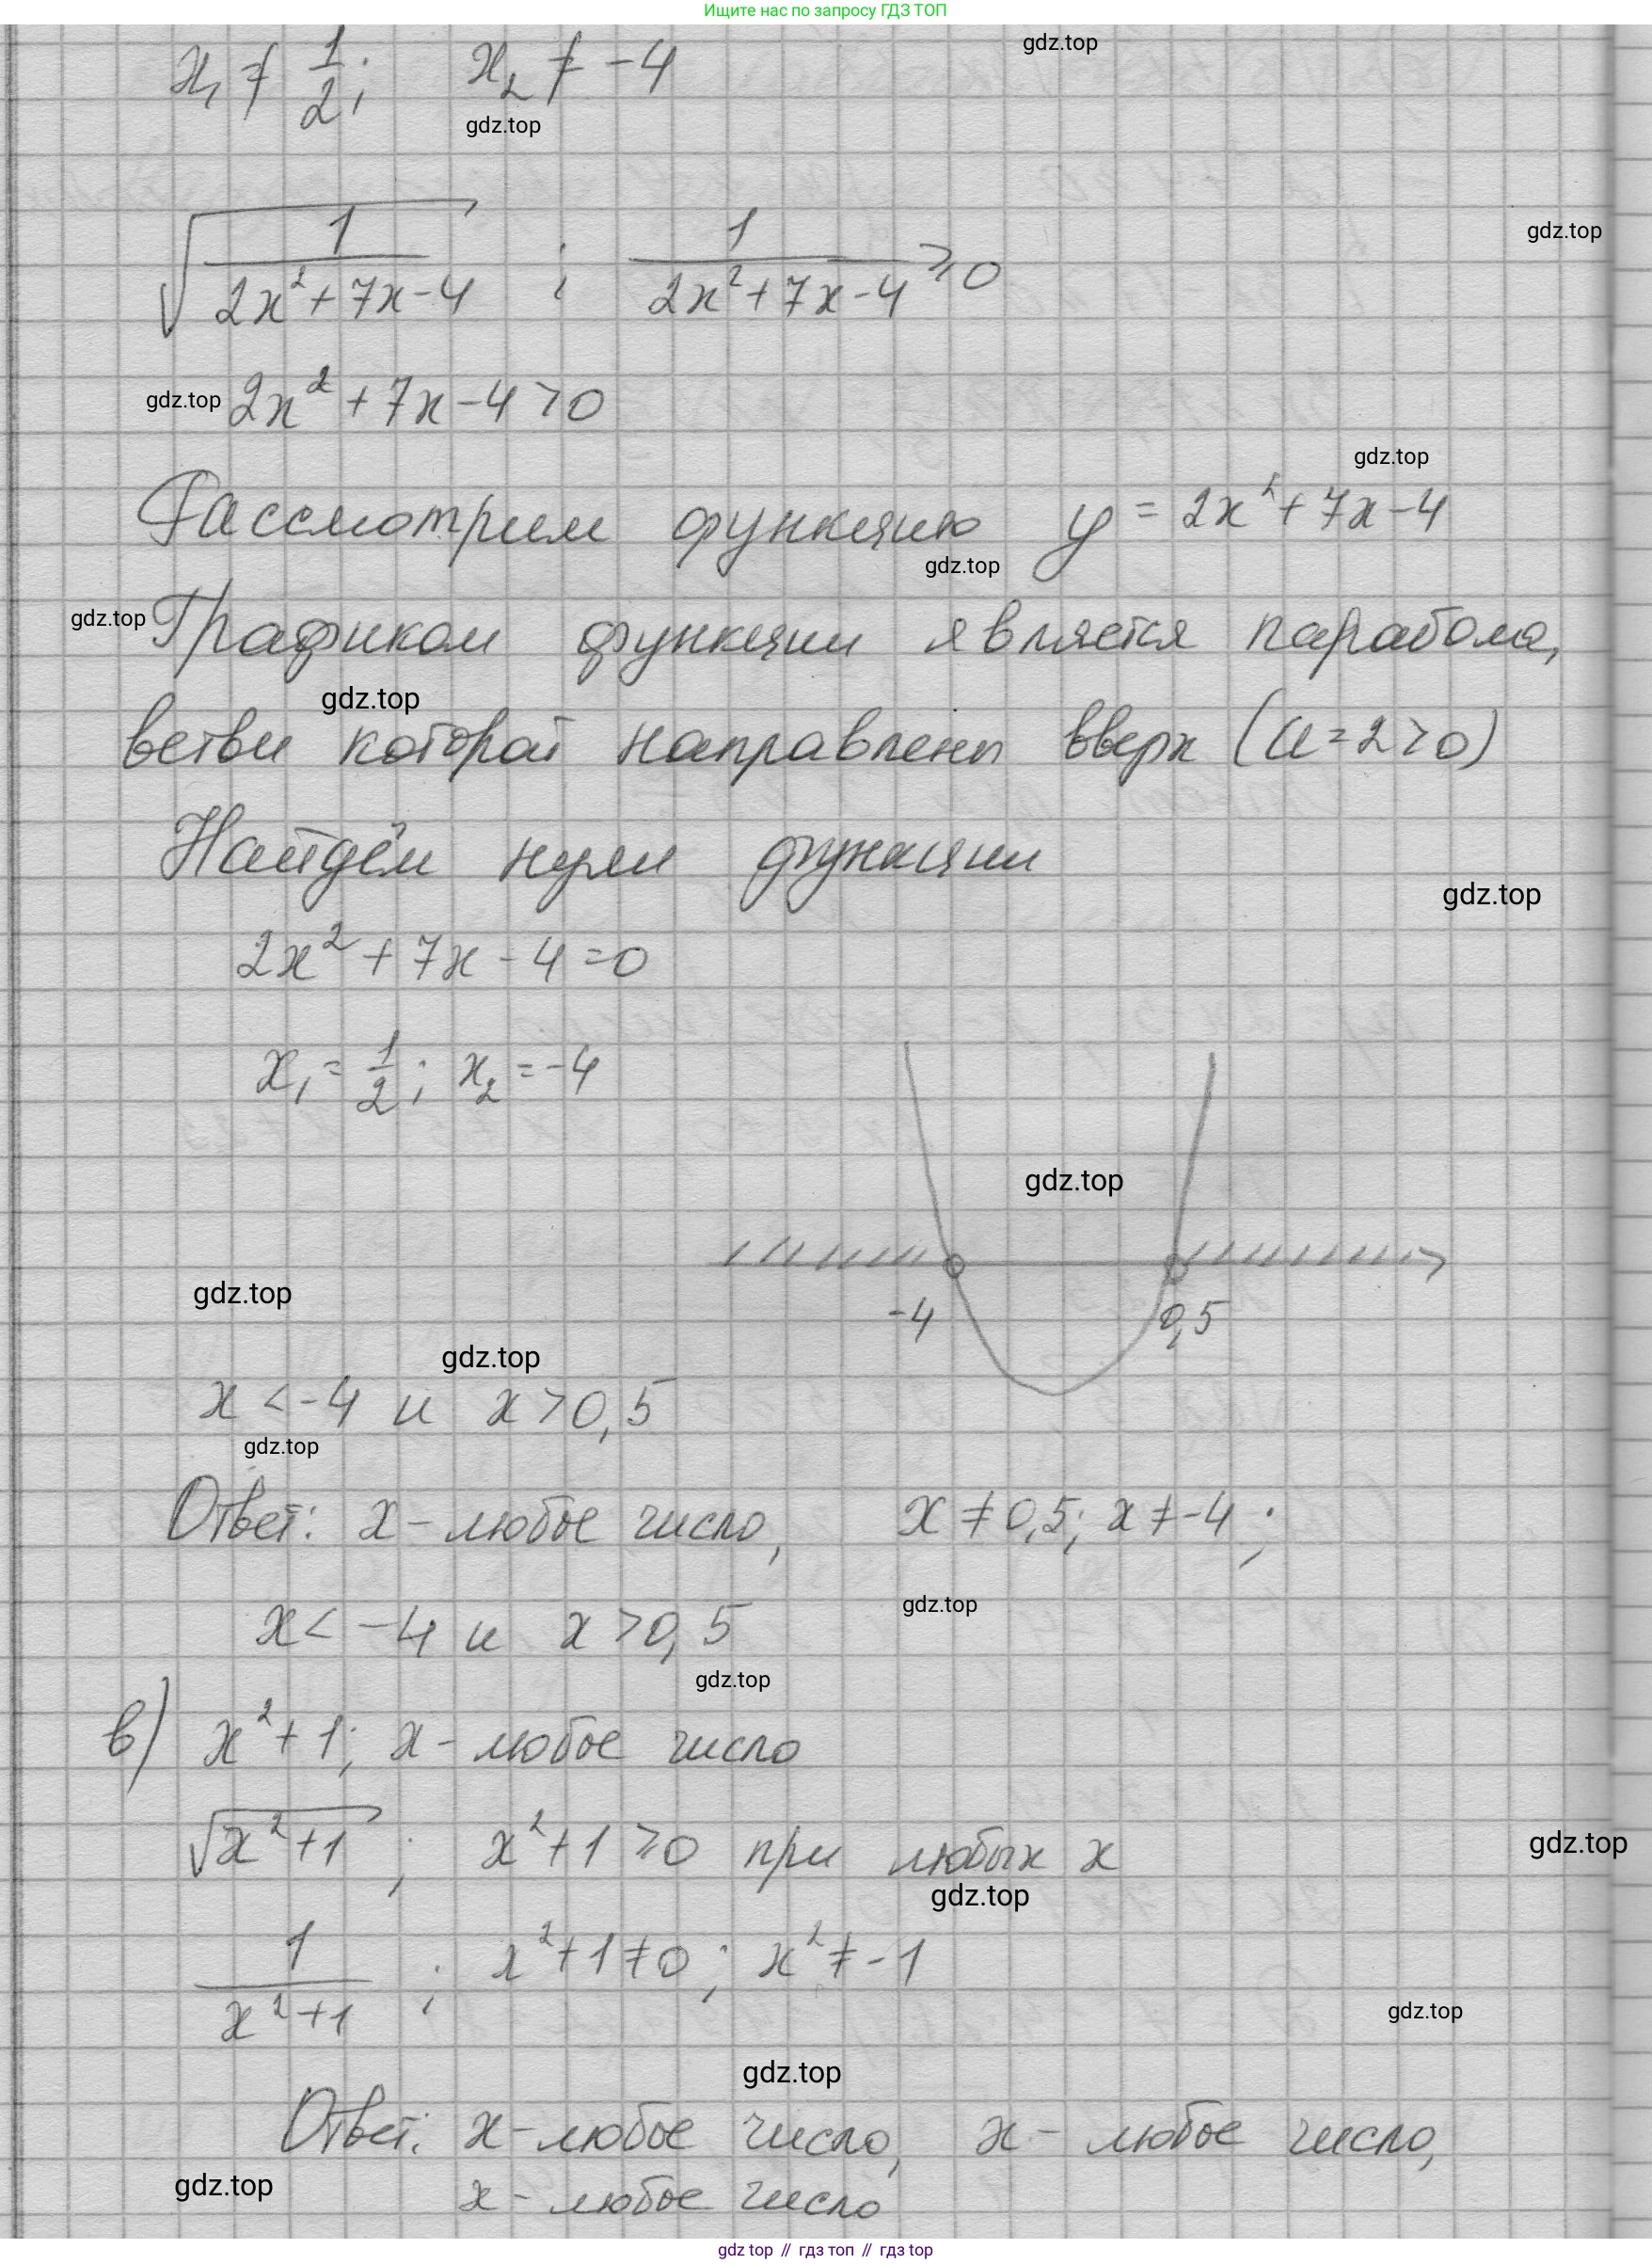 Ищите нас по запросу ГДЗ ТОП
x₁ ≠ 1/2; x₂ ≠ -4
gdz.top
gdz.top
√(1/(2x²+7x-4)) ; 1/(2x²+7x-4) ⩾ 0
gdz.top
2x² + 7x - 4 > 0
gdz.top
gdz.top
Рассмотрим функцию y = 2x² + 7x - 4
gdz.top
Графиком функции является парабола,
gdz.top
gdz.top
ветви которой направлены вверх (a = 2 > 0)
Найдём нули функции
gdz.top
2x² + 7x - 4 = 0
x₁ = 1/2; x₂ = -4
gdz.top
-4 0,5
gdz.top
gdz.top
x < -4 и x > 0,5
gdz.top
Ответ: x - любое число, x ≠ 0,5; x ≠ -4;
gdz.top
x < -4 и x > 0,5
gdz.top
в) x² + 1; x - любое число
√(x²+1) ; x² + 1 ⩾ 0 при любых x
gdz.top
gdz.top
1/(x²+1) ; x² + 1 ≠ 0; x² ≠ -1
gdz.top
gdz.top
Ответ: x - любое число, x - любое число,
gdz.top
x - любое число
gdz top // гдз топ // гдз top